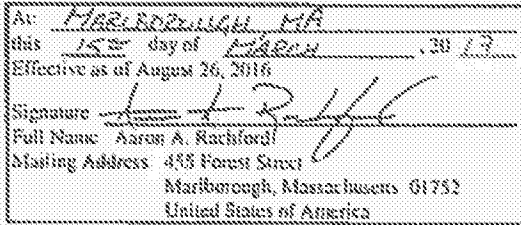 At: MARLBOROUGH, MA
this 15th day of MARCH, 2019
Effective as of August 26, 2016
Signature
Full Name Aaron A. Rachford
Mailing Address 455 Forest Street
Marlborough, Massachusetts 01752
United States of America